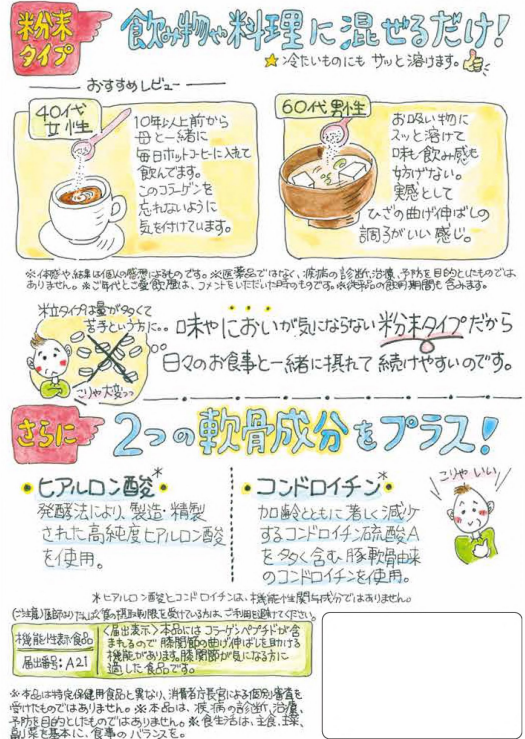 粉末
タイプ
飲み物や料理に混ぜるだけ!
★冷たいものにも サッと溶けます。
おすすめレビュー
40代
女性
10年以上前から
母と一緒に
毎日ホットコーヒーに入れて
飲んでます。
このコラーゲンを
忘れないように
気を付けています。
60代男性
お吸い物に
スッと溶けて
味も飲み感も
妨げない。
実感として
ひざの曲げ伸ばしの
調子がいい感じ。
※体感や結果は個人の感想によるものです。※医薬品ではなく、疾病の診断、治療、予防を目的としたものでは
ありません。※ご年代とご愛飲歴は、コメントをいただいた時のものです。※従来品の飲用期間も含みます。
粒タイプは量が多くて
苦手という方に。。
こりゃ大変っっ
味やにおいが気にならない粉末タイプだから
日々のお食事と一緒に摂れて続けやすいのです。
さらに
2つの軟骨成分をプラス!
・ヒアルロン酸・*
発酵法により、製造・精製
された高純度ヒアルロン酸
を使用。
・コンドロイチン・*
加齢とともに著しく減少
するコンドロイチン硫酸A
を多く含む豚軟骨由来
のコンドロイチンを使用。
こりゃいい
*ヒアルロン酸とコンドロイチンは、機能性関与成分ではありません。
(ご注意)医師よりたんぱく質の摂取制限を受けている方は、ご利用を避けてください。
機能性表示食品
届出番号:A21
<届出表示>本品にはコラーゲンペプチドが含
まれるので膝関節の曲げ伸ばしを助ける
機能があります。膝関節が気になる方に
適した食品です。
※本品は特定保健用食品と異なり、消費者庁長官による個別審査を
受けたものではありません。※本品は、疾病の診断、治療、
予防を目的としたものではありません。※食生活は、主食、主菜、
副菜を基本に、食事のバランスを。